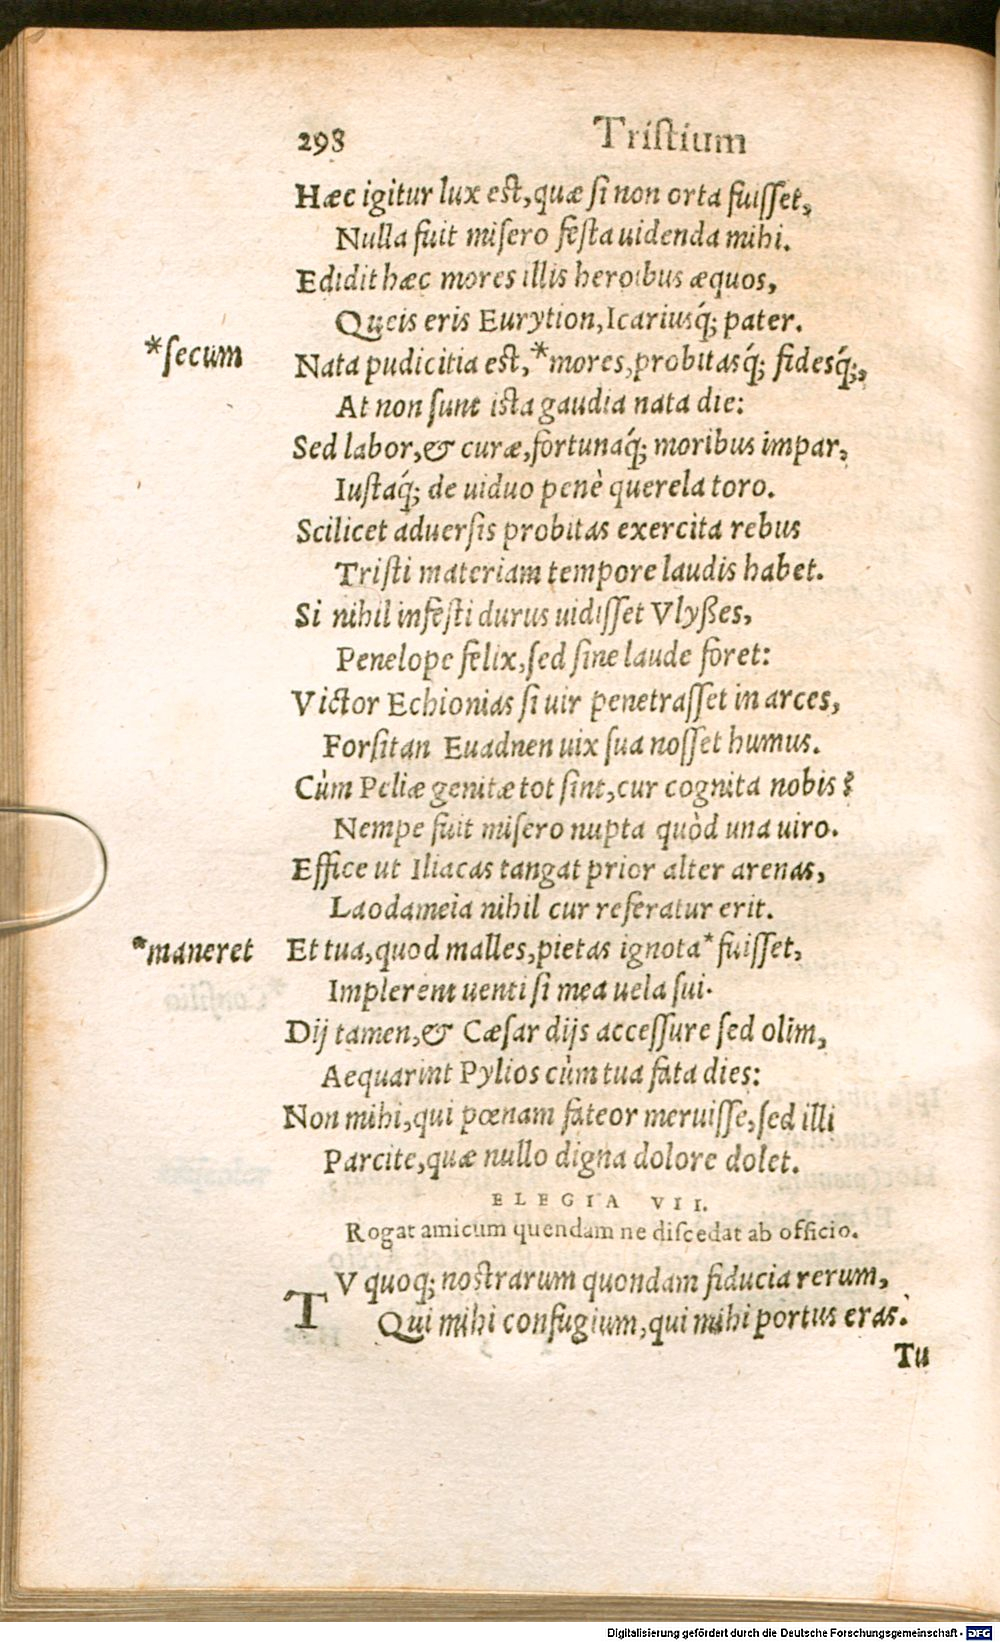 298 Tristium
Hæc igitur lux est, quæ si non orta fuisset,
Nulla fuit misero festa uidenda mihi.
Edidit hæc mores illis heroibus æquos,
Queis eris Eurytion, Icariusq́; pater.
*secum
Nata pudicitia est, *mores, probitasq́; fidesq́;,
At non sunt ista gaudia nata die:
Sed labor, & curæ, fortunaq́; moribus impar,
Iustaq́; de uiduo penè querela toro.
Scilicet aduersis probitas exercita rebus
Tristi materiam tempore laudis habet.
Si nihil infesti durus uidisset Vlyßes,
Penelope felix, sed sine laude foret:
Victor Echionias si uir penetrasset in arces,
Forsitan Euadnen uix sua nosset humus.
Cùm Peliæ genitæ tot sint, cur cognita nobis?
Nempe fuit misero nupta quòd una uiro.
Effice ut Iliacas tangat prior alter arenas,
Laodameia nihil cur referatur erit.
*maneret
Et tua, quod malles, pietas ignota* fuisset,
Implerent uenti si mea uela sui.
Dij tamen, & Cæsar dijs accessure sed olim,
Aequarint Pylios cùm tua fata dies:
Non mihi, qui pœnam fateor meruisse, sed illi
Parcite, quæ nullo digna dolore dolet.
ELEGIA VII.
Rogat amicum quendam ne discedat ab officio.
TV quoq; nostrarum quondam fiducia rerum,
Qui mihi confugium, qui mihi portus eras.
Tu
Digitalisierung gefördert durch die Deutsche Forschungsgemeinschaft - DFG